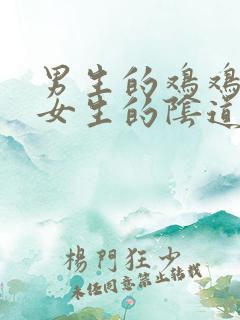 男生的鸡鸡
女生的陰道
楊門狂少
未经同意禁止转载